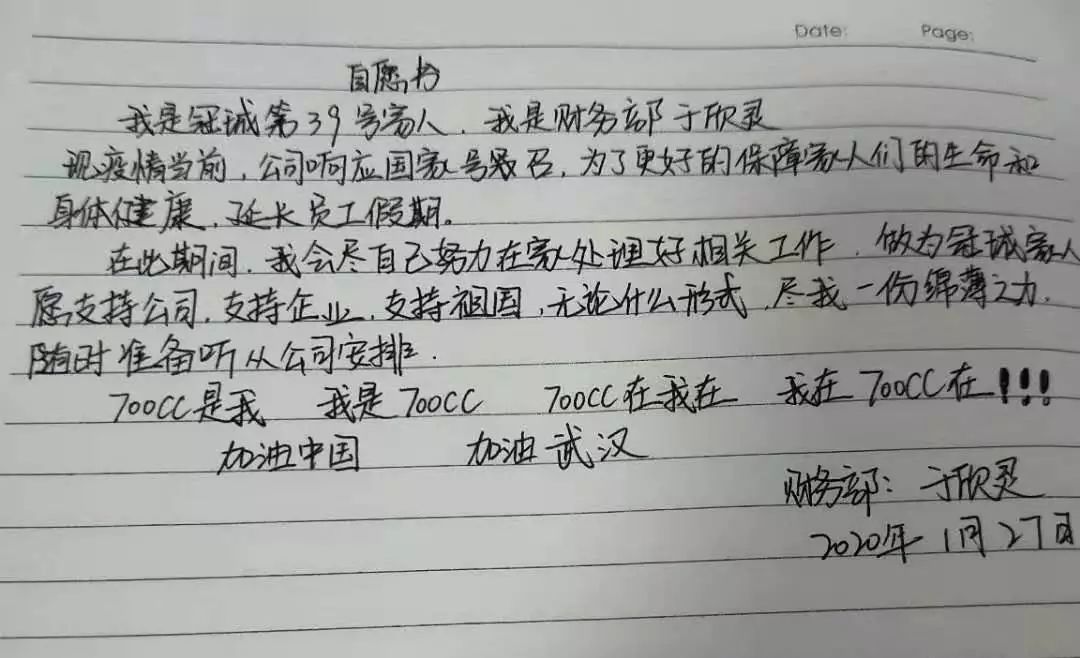 Date: Page:
自愿书
我是冠珹第39号家人，我是财务部于欣灵
现疫情当前，公司响应国家号召，为了更好的保障家人们的生命和
身体健康，延长员工假期。
在此期间，我会尽自己努力在家处理好相关工作，做为冠珹家人
愿支持公司，支持企业，支持祖国，无论什么形式，尽我一份绵薄之力，
随时准备听从公司安排．
700CC是我 我是700CC 700CC在我在 我在700CC在！！！
加油中国 加油武汉
财务部：于欣灵
2020年1月27日